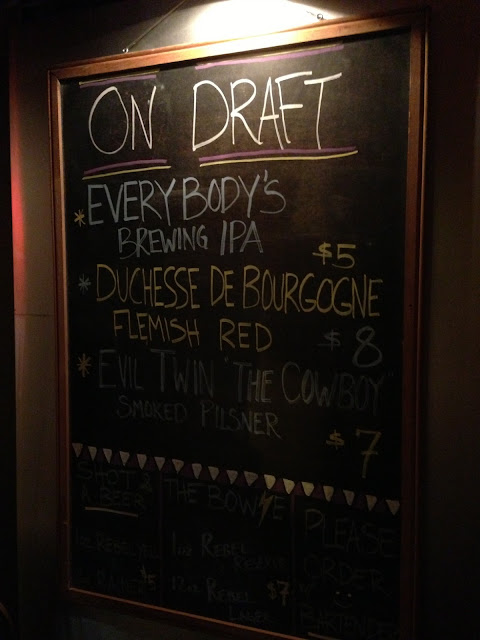 ON DRAFT
* EVERYBODY'S
BREWING IPA
$5
* DUCHESSE DE BOURGOGNE
FLEMISH RED
$8
* EVIL TWIN "THE COWBOY"
SMOKED PILSNER
$7
SHOT &
A BEER
1 oz REBEL
$5
THE BOWIE
1 oz REBEL
RESERVE
12 oz REBEL
LAGER
$7
PLEASE
ORDER
BARTENDER